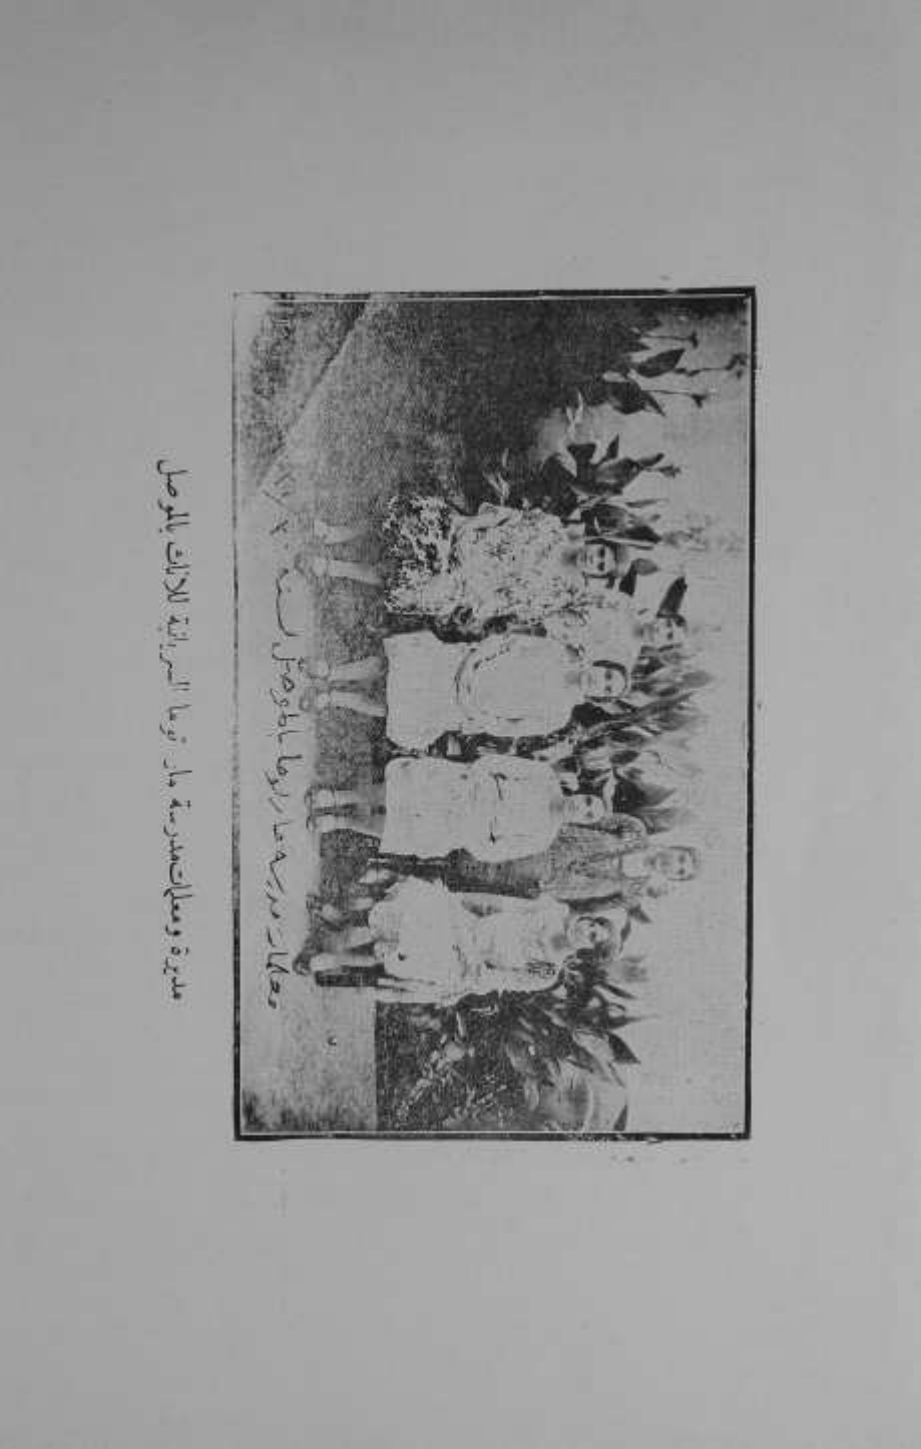 معلمات مدرسة مار توما بالموصل لسنة
مديرة ومعلمات مدرسة مار توما السريانية للاناث بالموصل